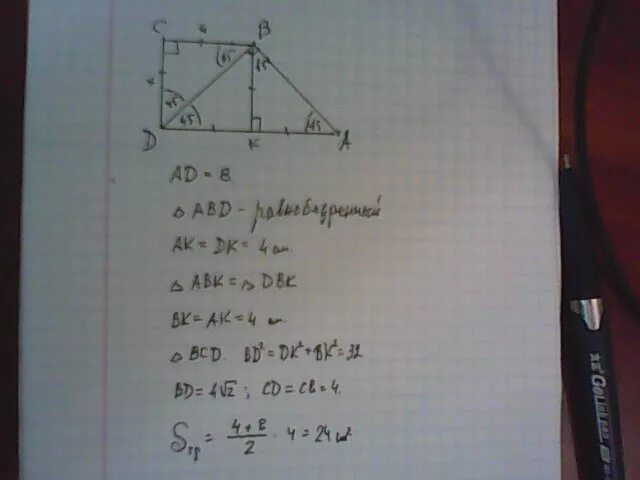 C 4 B
4 45 45
45
45 45
D K A
AD = 8
△ ABD - равнобедренный
AK = DK = 4 см
△ ABK = △ DBK
BK = AK = 4 см
△ BCD. BD² = DK² + BK² = 32
BD = 4√2 ; CD = CB = 4.
Sтр = (4 + 8)/2 · 4 = 24 см²